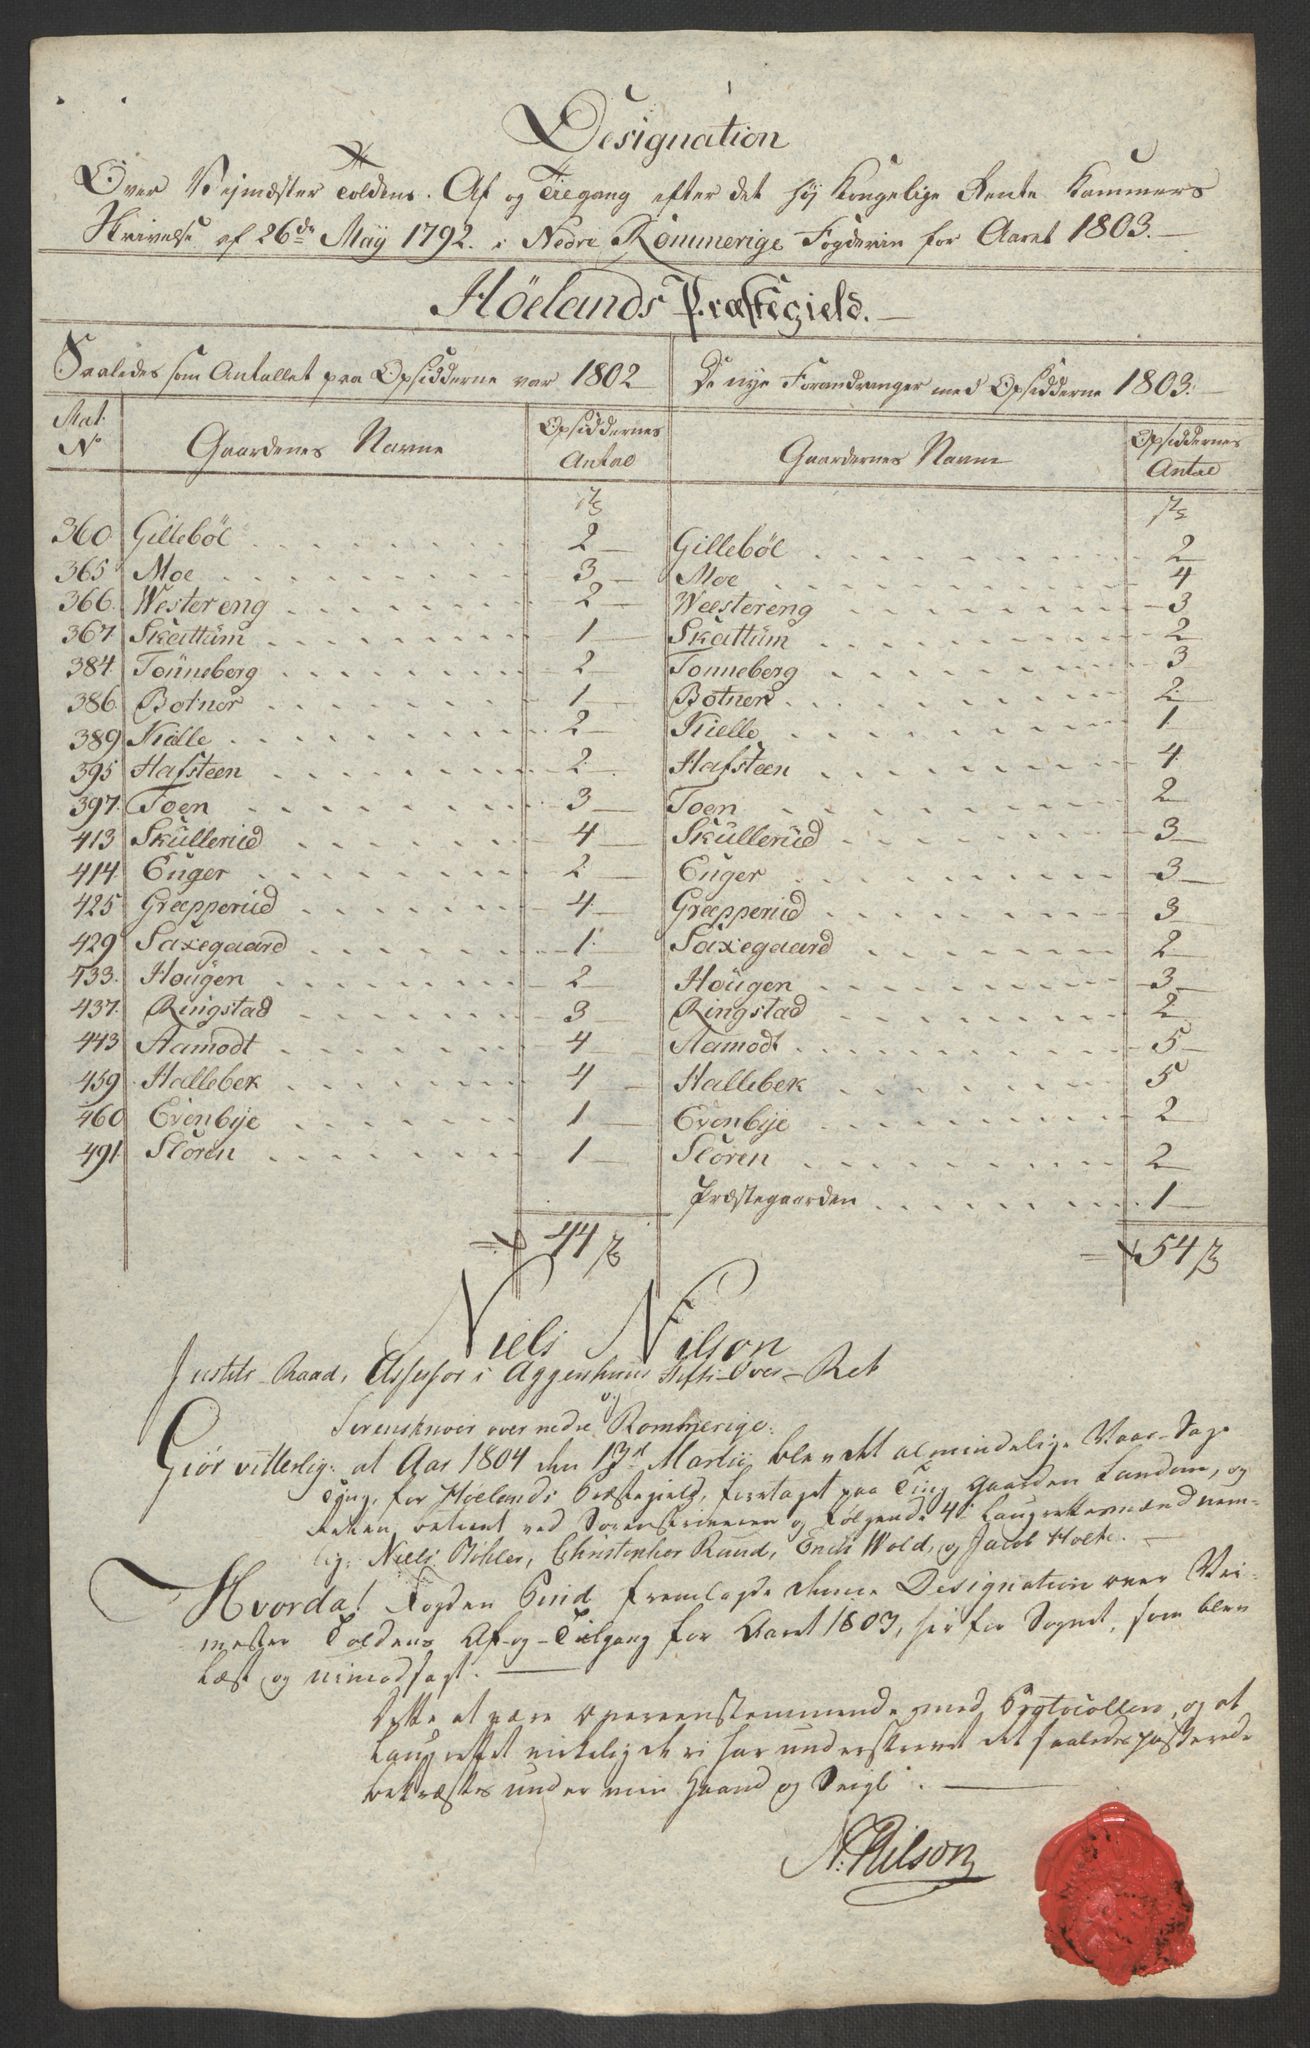 Designation
Over Vejmester Toldens. Af og Tilegang efter det høy Kongelige Rente Kammers
Skrivelse af 26de Maÿ 1792. i Nedre Rommerige Fogderie for Aaret 1803.
Höelands Præstegield.
Saaledes som Antallet paa Opsidderne var 1802
De nye Forandringer med Opsidderne 1803.
Mat. No
Gaardenes Navne
Opsiddernes Antal
Gaardernes Navne
Opsiddernes Antal
360 Gillebøl 2 Gillebøl 2
365 Moe 3 Moe 4
366. Westereng 2 Wæstereng 3
367. Skattüm 1 Skattüm 2
384. Tonneberg 2 Tonneberg 3
386. Botner 1 Botner 2
389 Kielle 2 Kielle 1
395 Hafsteen 2 Hafsteen 4
397. Toen 3 Toen 2
413 Skülleriüd 4 Skülleriüd 3
414 Euger 2 Euger 3
425 Græpperiüd 4 Græpperiüd 3
429 Saxegaard 1 Saxegaard 2
433. Hougen 2 Hougen 3
437. Ringstad 3 Ringstad 2
443 Aamodt 4 Aamodt 5
459 Hallebek 4 Hallebek 5
460 Evenbÿe 1 Evenbÿe 2
491 Sloren 1 Sloren 2
Præstegaarden 1
44 54
Niels Nilson
Justits-Raad, Assessor i Aggershuus Stifts-Over-Ret
og
Sorenskriver over nedre Rommerige.
Giör vitterlig: at Aar 1804 den 13de Martii, blev det almindelige Vaar-Sage
Ting, for Hoelands Præstegield, foretaget paa Ting Gaarden Landum, og
Retten betient ved Sorenskriveren og følgende 4 Laugrettesmænd nem-
lig: Niels Bøhler, Christopher Ruud, Wold, og Jacob Holte.
Hvorda! Fogden fremlagde denne Designation over Vei-
mester Toldens Af-og-Tilgang for Aaret 1803, her for Sognet, som blev
læst og uimodsagt.
Dette at være overeensstemmende med Protocollen, og at
Laugrettet virkelig har underskrevet det saaledes passerede
bekræftes under min Haand og Seigl.
N: Nilson